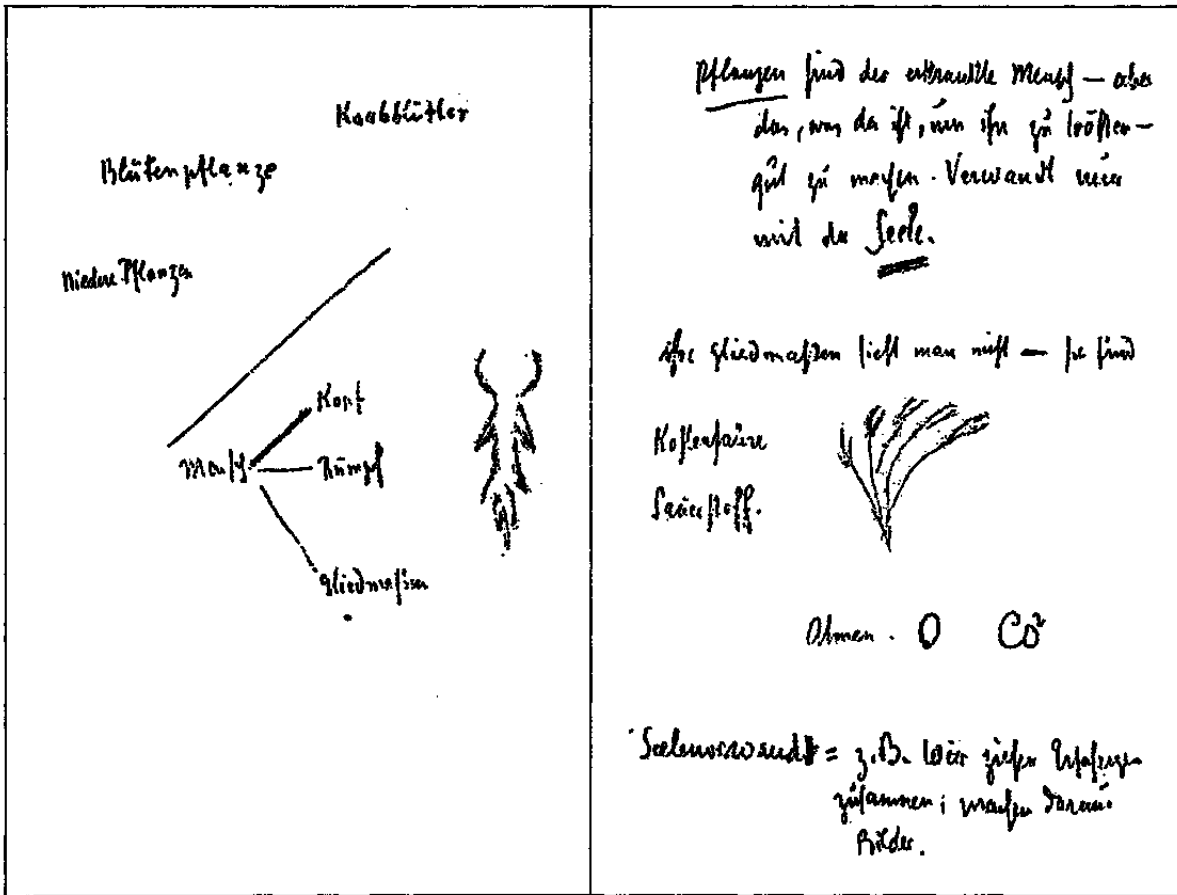 Korbblütler
Blütenpflanze
Niedere Pflanzen
Kopf
Mensch
Rumpf
Gliedmassen
Pflanzen sind der erkrankte Mensch — aber
das, was da ist, um ihn zu trösten —
gut zu machen. Verwandt
mit der Seele.
ihre Gliedmaßen sieht man nicht — sie sind
Kohlensäure
Sauerstoff.
Atmen. O CO²
Seelenverwandt = z.B. Wir ziehen
zusammen; machen daraus
Bilder.